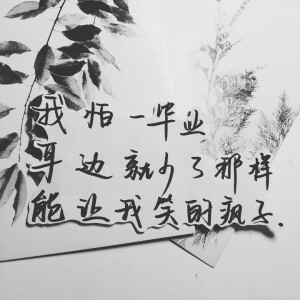 我怕一毕业
耳边就少了那样
能让我笑的疯子.